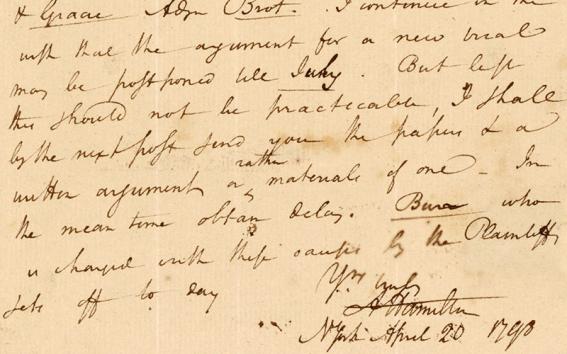 & Gracie Adm Brot. . I continue in the
wish that the argument for a new trial
may be postponed till July. But lest
this should not be practicable, I shall
by the next post send you the papers & a
written argument or rather materials of one – In
the mean time obtain delay. Burr who
is charged with these causes by the Plaintiffs
sets off to day
Yrs truly
A Hamilton
N York April 20 1798